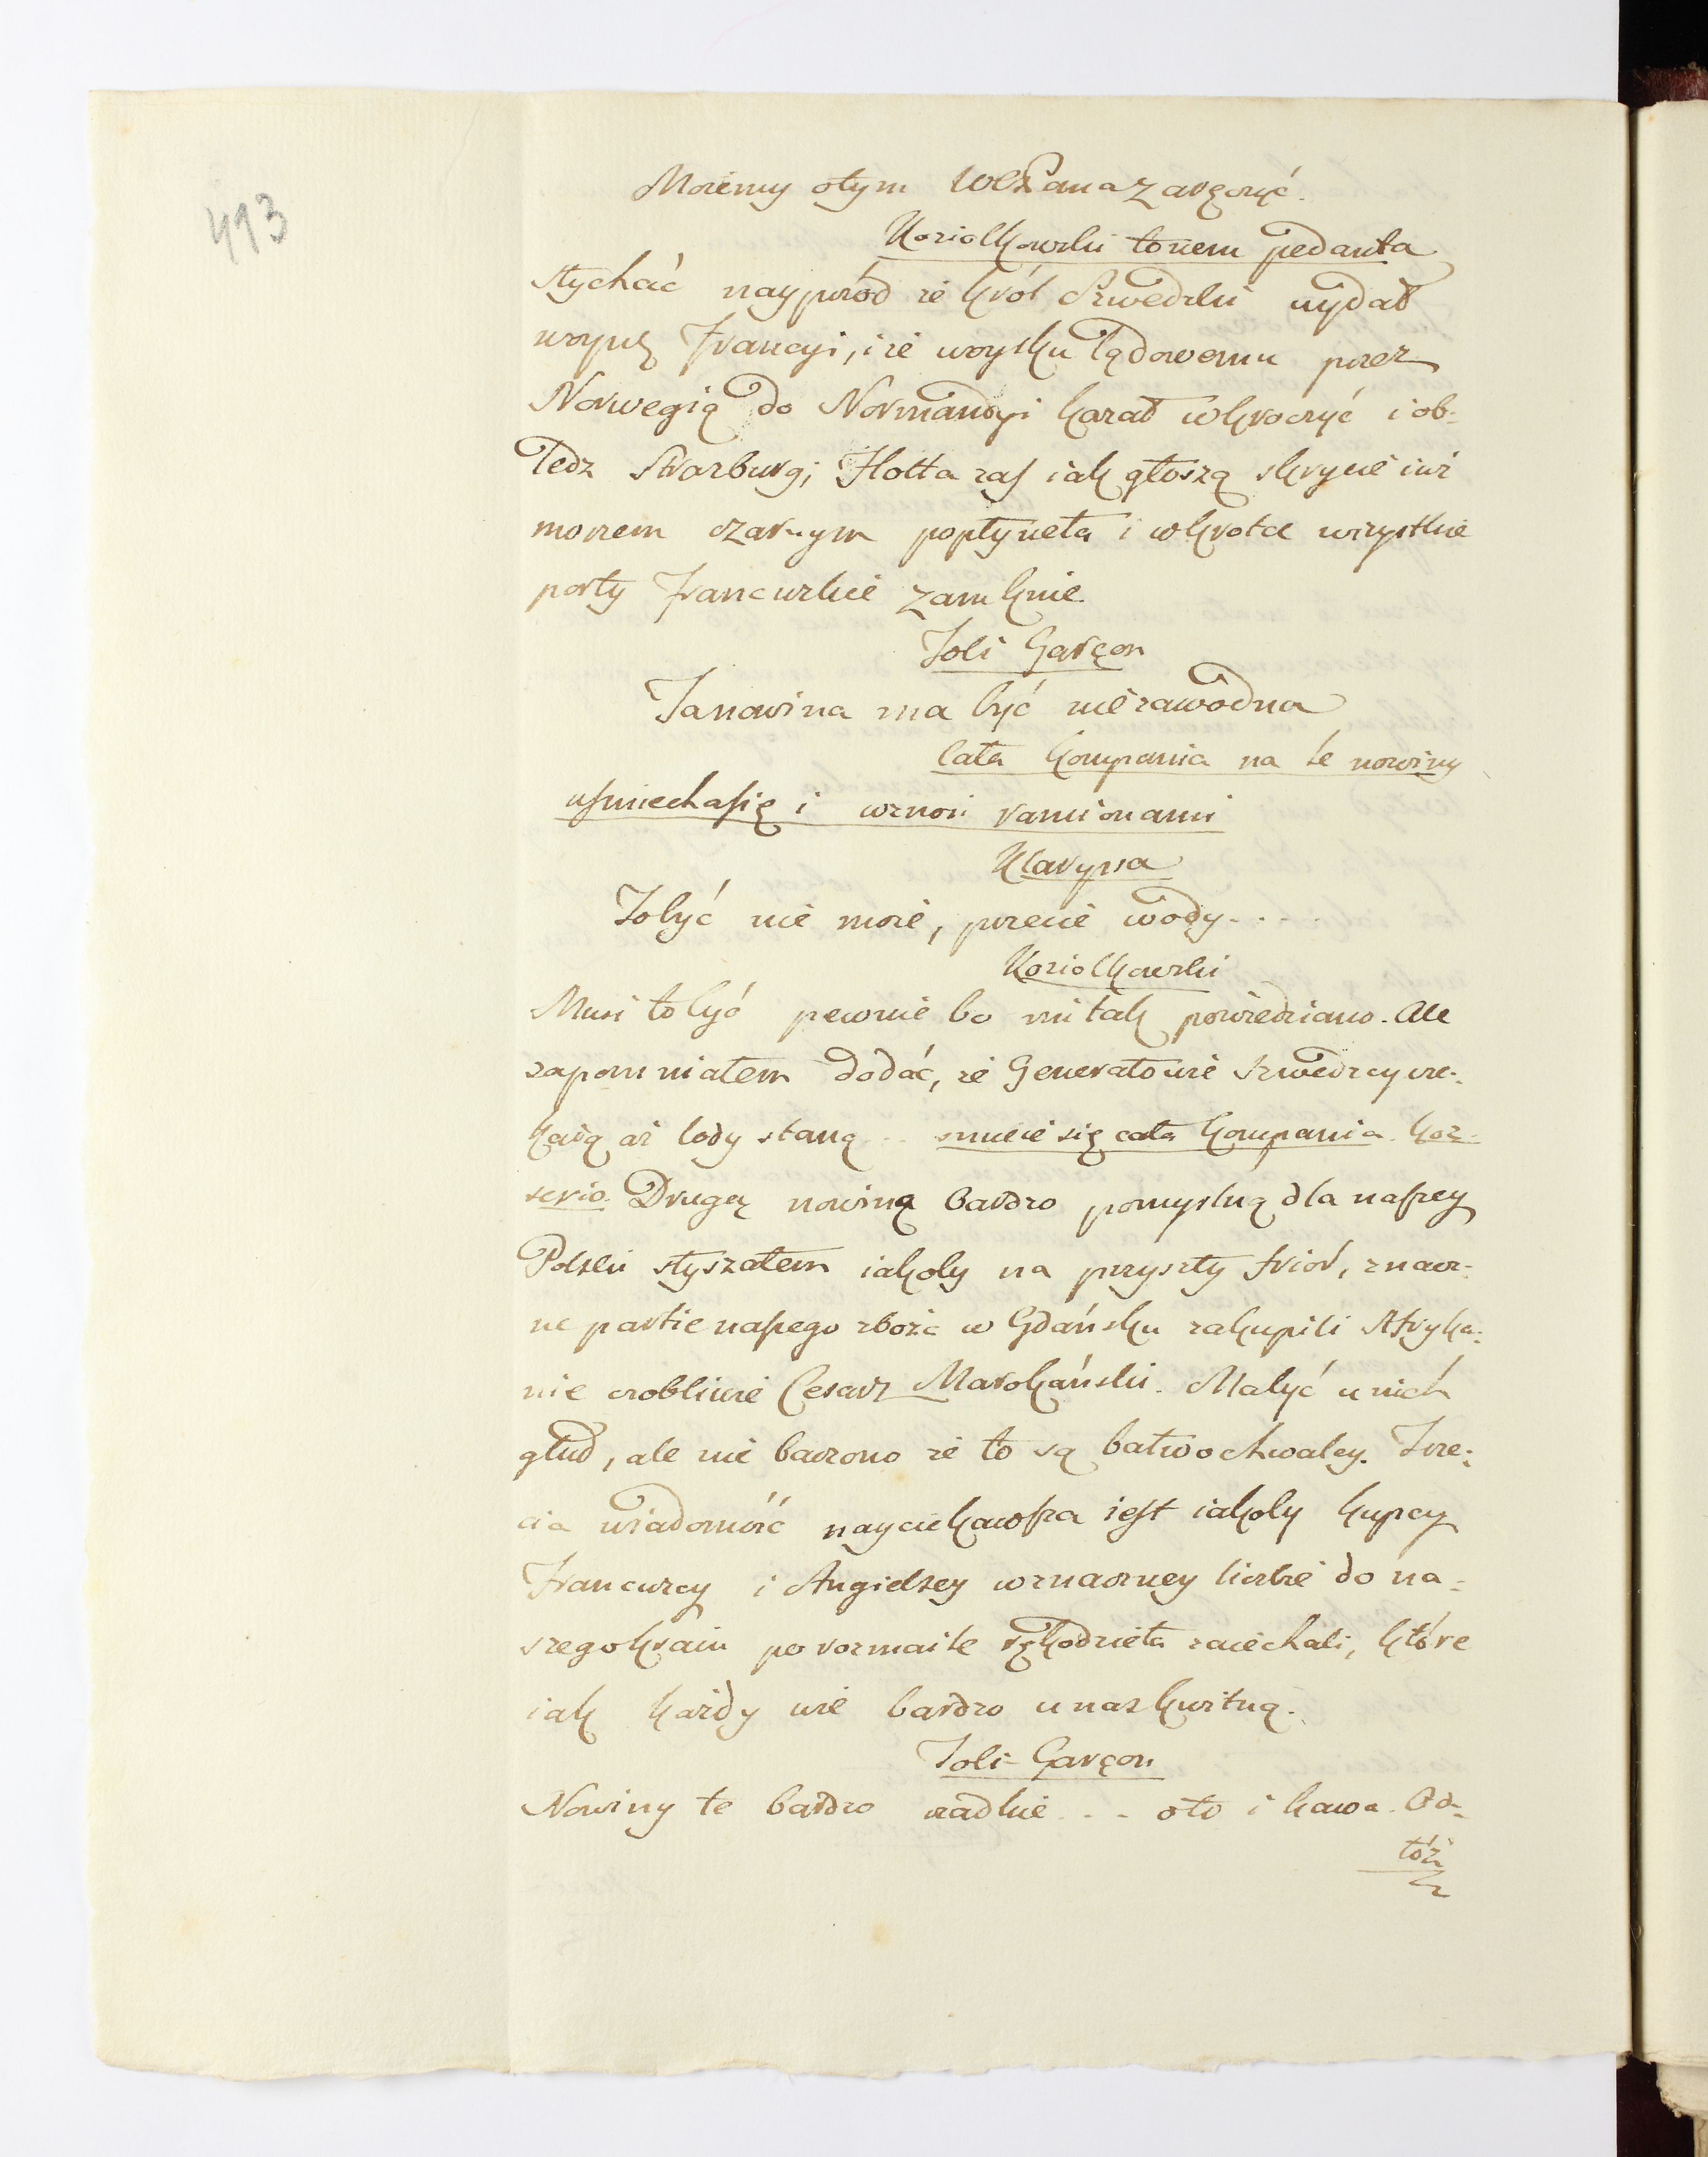 493
Możemy otym WexPana zaręczyć.
Koziołkowski tonem pedanta
słychać naypród że król Szwedzki wydał
woynę Francyi, i że woysku lądowemu przez
Norwegią do Normandyi kazał wkroczyć i ob-
ledz Strazburg; Flotta zaś iak głoszą skrycie iuż
morzem czarnym popłyneła i wkrotce wszystkie
porty Francuzkie zamknie.
Joli Garçon
Ta nowina ma być niezawodna
Cała kompania na te nowiny
uśmiecha się i wznosi ramionami
Klaryssa
To być nie może, przecie wody....
Koziołkowski
Musi to być pewnie bo mi tak powiedziano. Ale
zapomniałem dodać, że Generałowie Szwedzcy cze-
kaią aż lody staną .. smieie się cała kompania. Koz:
serio. Drugą nowinę bardzo pomyslną dla naszey
Polski słyszałem iakoby na przyszły frior, znacz-
ne partie naszego zboża w Gdańsku zakupili Afryka-
nie osobliwie Cesarz Marokański. Ma być u nich
głud, ale nie baczono że to są bałwochwalcy. Trze-
cia wiadomość nayciekawsza iest iakoby kupcy
Francuzcy i Angielscy w znaczney liczbie do na-
szego kraiu po rozmaite rękodzieła ziechali, które
iak każdy wie bardzo u nas kwitną.
Joli-Garçon
Nowiny te bardzo rzadkie .. - oto i kawa. Od-
tóż